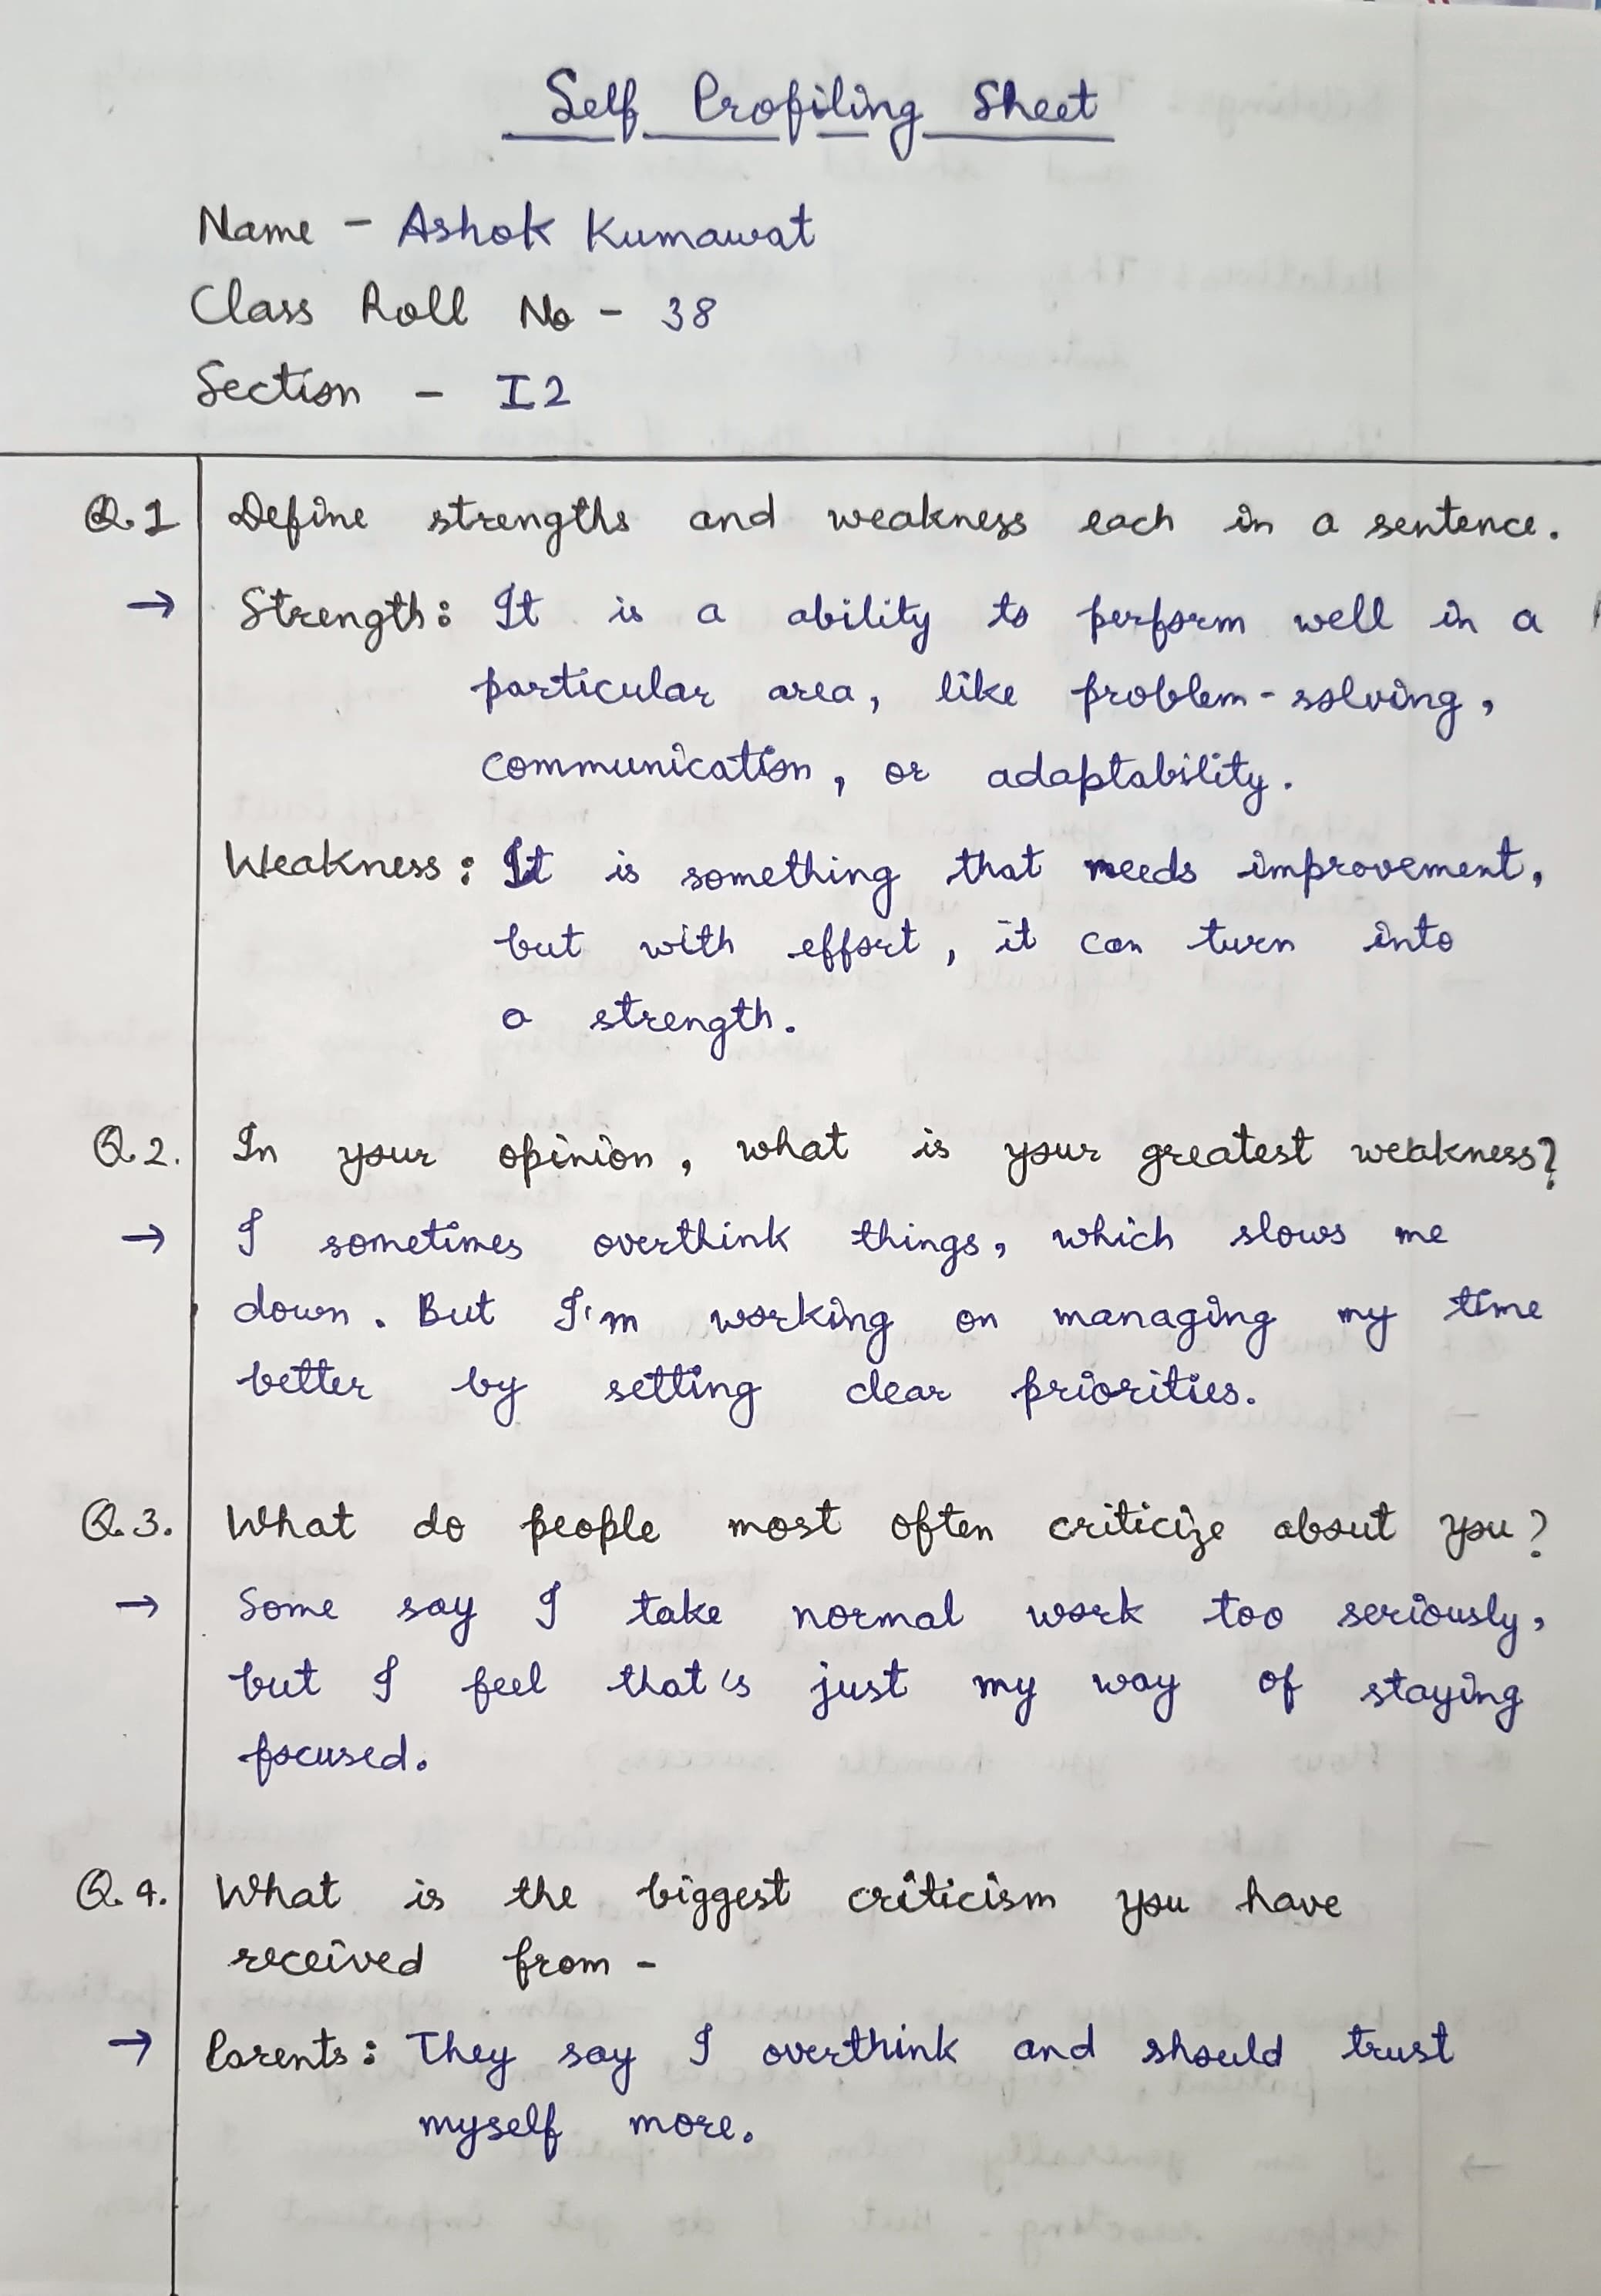 Self Profiling Sheet
Name - Ashok Kumawat
Class Roll No - 38
Section - I2
Q.1 Define strengths and weakness each in a sentence.
→ Strength: It is a ability to perform well in a
particular area, like problem-solving,
communication, or adaptability.
Weakness: It is something that needs improvement,
but with effort, it can turn into
a strength.
Q.2. In your opinion, what is your greatest weakness?
→ I sometimes overthink things, which slows me
down. But I'm working on managing my time
better by setting clear priorities.
Q.3. What do people most often criticize about you?
→ Some say I take normal work too seriously,
but I feel that's just my way of staying
focused.
Q.4. What is the biggest criticism you have
received from -
→ Parents: They say I overthink and should trust
myself more.